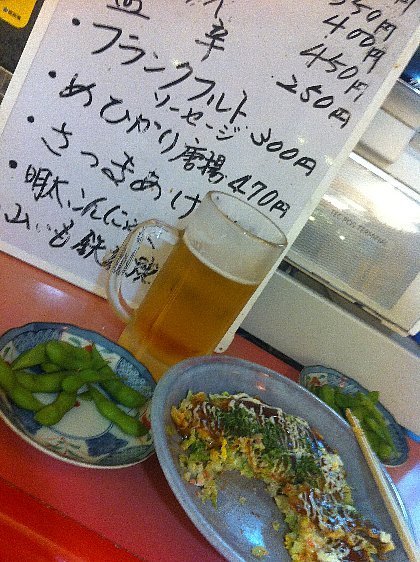 350円
400円
辛 450円
250円
・フランクフルト
ソーセージ 300円
・めひかり唐揚 470円
・さつまあげ
・明太こんにゃく
山いも鉄板